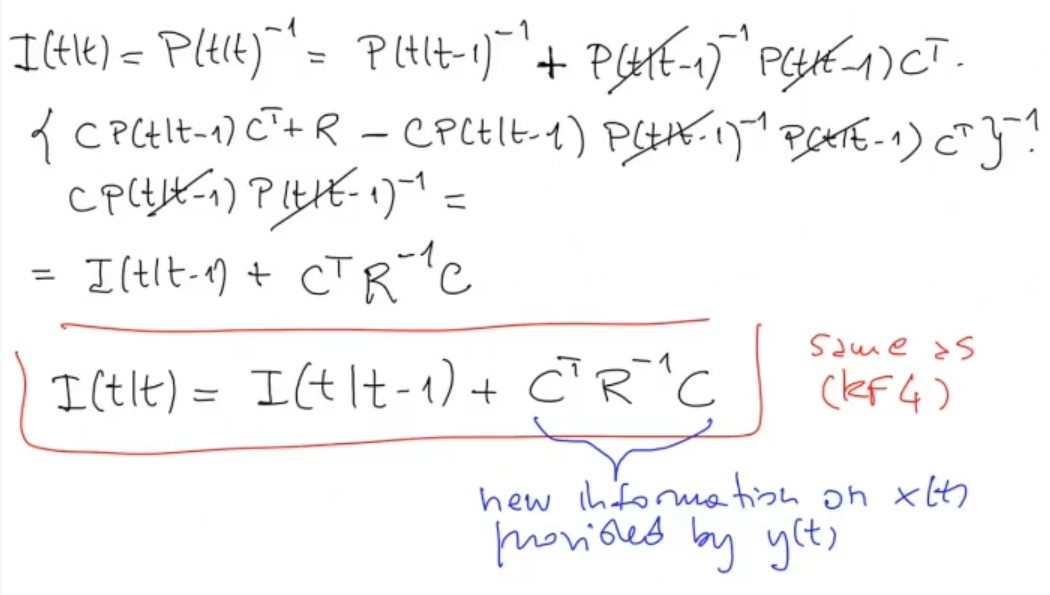 I(t|t) = P(t|t)⁻¹ = P(t|t-1)⁻¹ + P(t|t-1)⁻¹ P(t|t-1) Cᵀ ·
{ C P(t|t-1) Cᵀ + R - C P(t|t-1) P(t|t-1)⁻¹ P(t|t-1) Cᵀ }⁻¹ ·
C P(t|t-1) P(t|t-1)⁻¹ =
= I(t|t-1) + Cᵀ R⁻¹ C
I(t|t) = I(t|t-1) + Cᵀ R⁻¹ C
same as
(KF4)
new information on x(t)
provided by y(t)